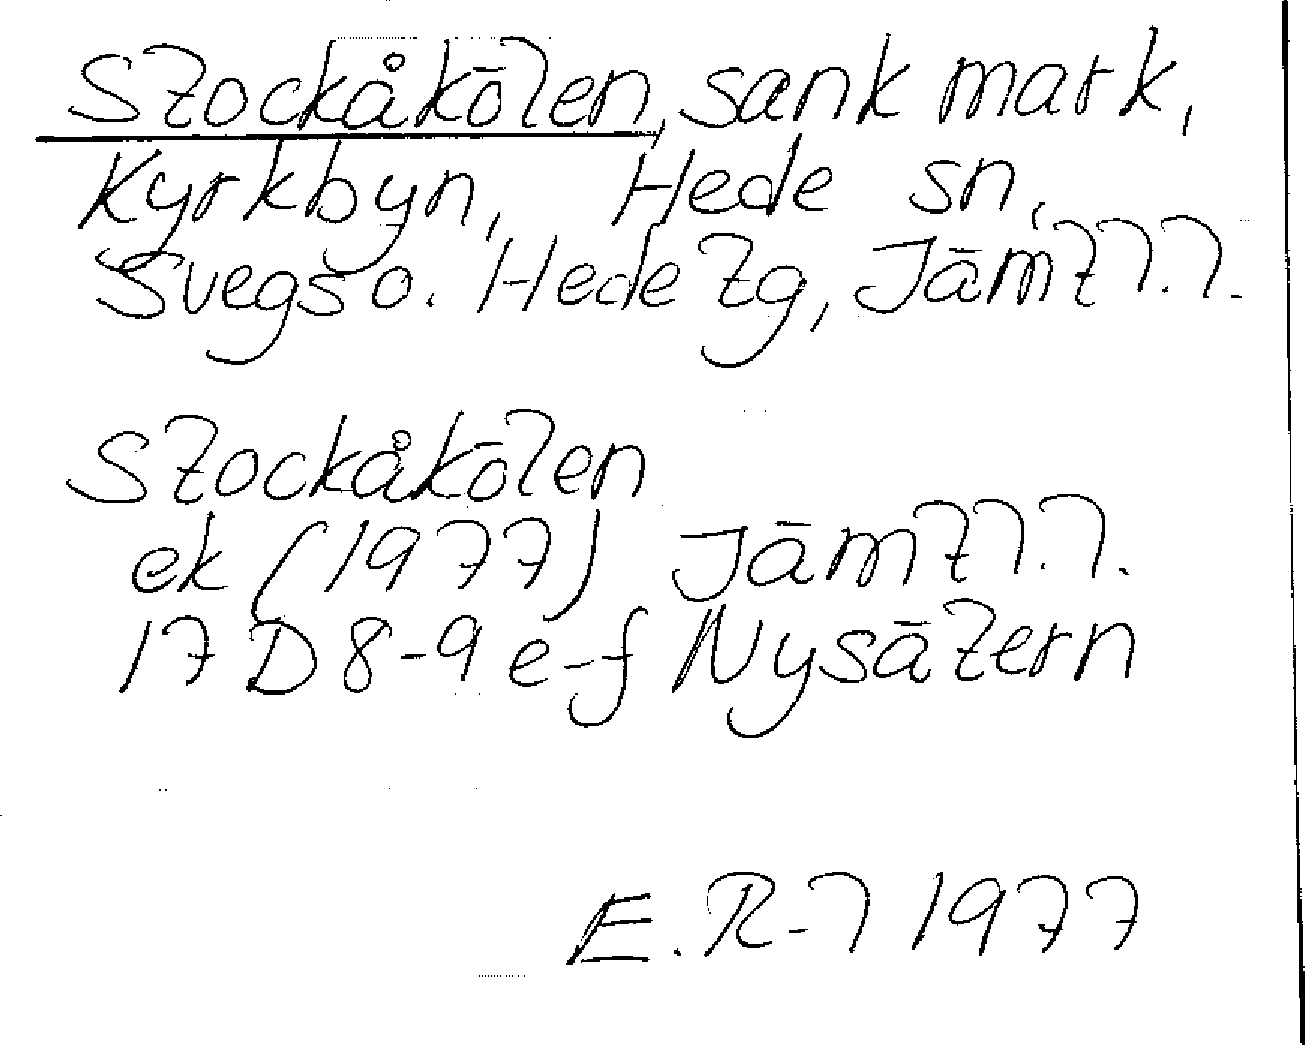 Stockåkölen, sank mark,
Kyrkbyn, Hede sn,
Svegs o. Hede tg, Jämtl. l.
Stockåkölen
ek (1977) Jämtl. l.
17 D 8-9 e-f Nysätern
E. R-l 1977